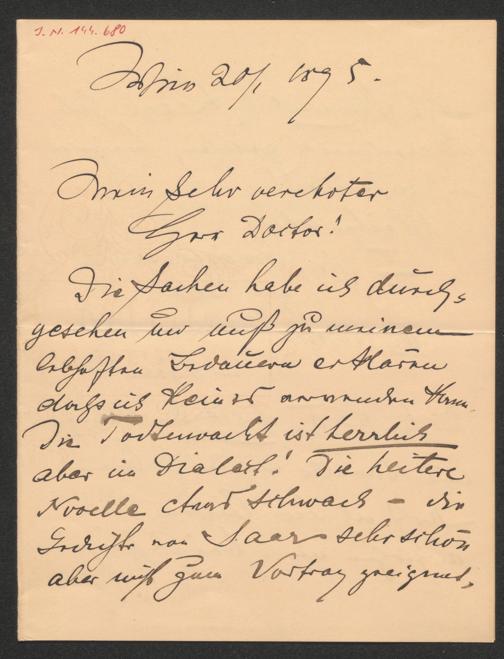 J. N. 144.680
Wien 20/1 1895.
Mein sehr verehrter
Herr Doctor!
Die Sachen habe ich durch-
gesehen und muß zu meinem
lebhaften Bedauern erklären
daß ich keines verwenden kann.
Die Todtenwacht ist herrlich
aber im Dialect! Die heitere
Novelle etwas schwach – die
Gedichte von Saar sehr schön
aber nicht zum Vortrag geeignet,